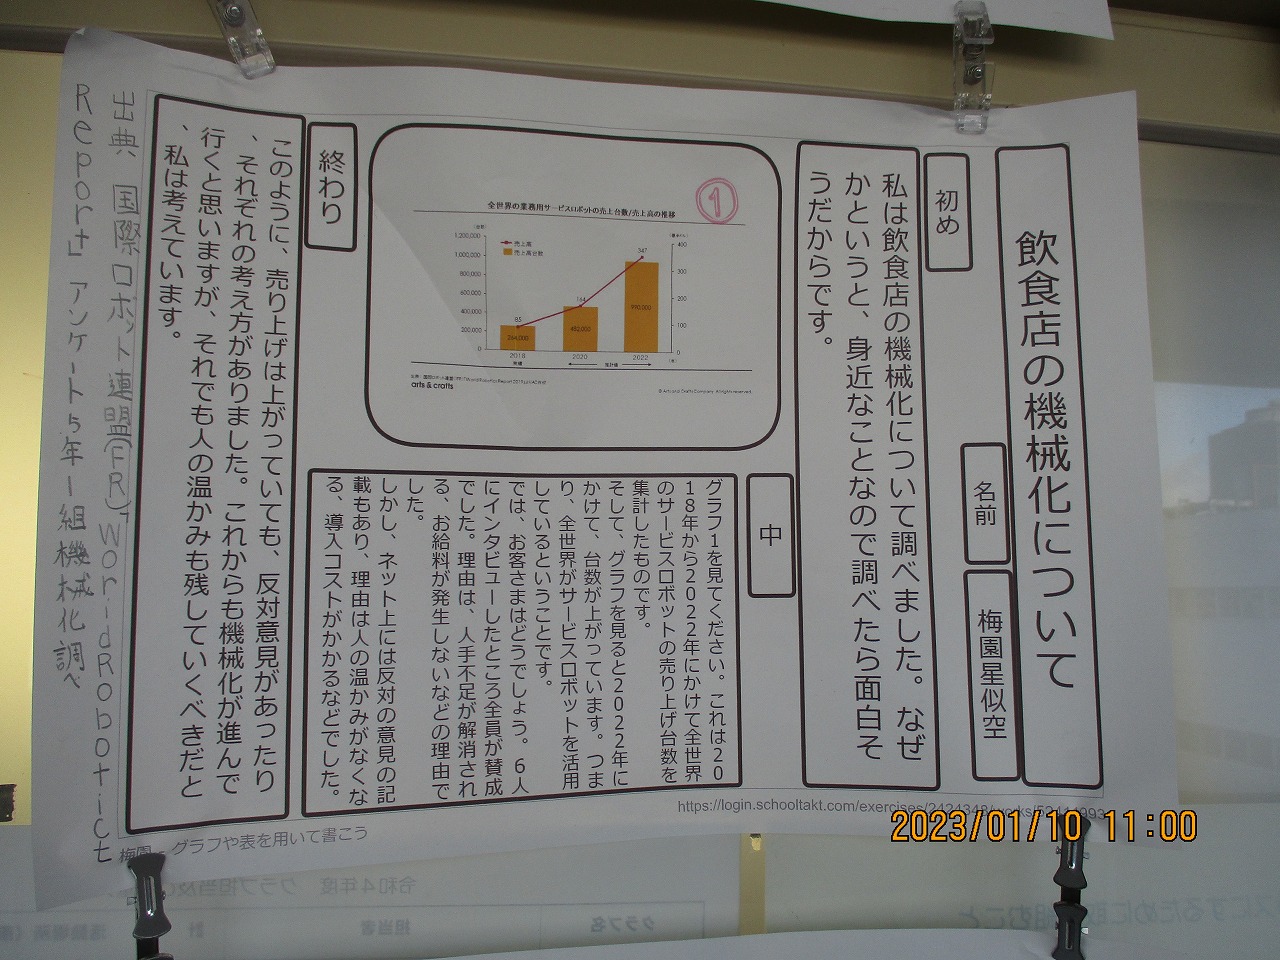 飲食店の機械化について
名前
梅園星似空
初め
私は飲食店の機械化について調べました。なぜ
かというと、身近なことなので調べたら面白そ
うだからです。
①
全世界の業務用サービスロボットの売上台数/売上高の推移
1,200,000
1,000,000
800,000
600,000
400,000
200,000
0
売上高
売上高台数
400
300
200
100
0
85
164
347
264,000
482,000
990,000
2018
2020
2022
実績
推計値
arts & crafts
中
グラフ1を見てください。これは20
18年から2022年にかけて全世界
のサービスロボットの売り上げ台数を
集計したものです。
そして、グラフを見ると2022年に
かけて、台数が上がっています。つま
り、全世界がサービスロボットを活用
しているということです。
では、お客さまはどうでしょう。6人
にインタビューしたところ全員が賛成
でした。理由は、人手不足が解消され
る、お給料が発生しないなどの理由で
した。
しかし、ネット上には反対の意見の記
載もあり、理由は人の温かみがなくな
る、導入コストがかかるなどでした。
終わり
このように、売り上げは上がっていても、反対意見があったり
、それぞれの考え方がありました。これからも機械化が進んで
行くと思いますが、それでも人の温かみも残していくべきだと
、私は考えています。
出典 国際ロボット連盟(FR)「WoridRobotict
Report」アンケート5年1組機械化調べ
https://login.schooltakt.com/exercises/2424348/works/
梅園 グラフや表を用いて書こう
2023/01/10 11:00
令和4年度 クラブ担当及び
クラブ名
担当者
計
スにするために取り組むこと